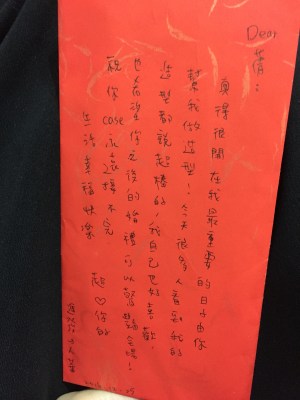 Dear 蒨:
真得很開心在我最重要的日子由你
幫我做造型!今天很多人看到我的
造型都說超棒的,我自己也好喜歡,
也希望你之後的婚禮可以驚艷全場!
祝你 case 永遠接不完
生活幸福快樂
超♡你的